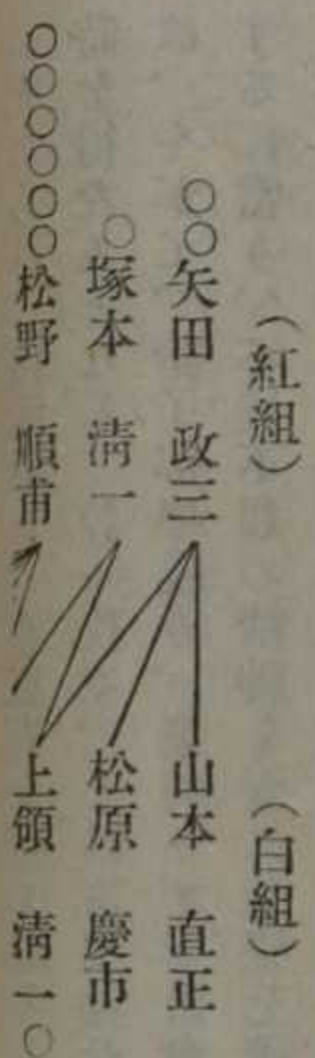 （紅組）　（白組）
○○矢田　政三　山本　直正
○塚本　淸一　松原　慶市
○○○○○○松野　順甫　上領　淸一○